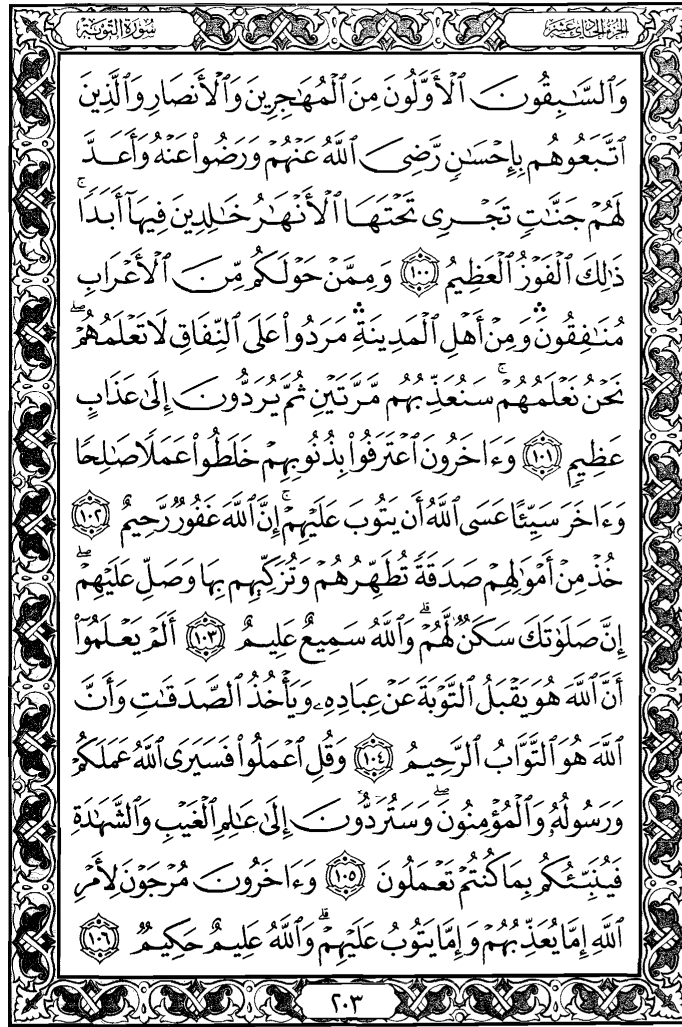 الجزء الحادي عشر
سورة التوبة
وَٱلسَّٰبِقُونَ ٱلْأَوَّلُونَ مِنَ ٱلْمُهَٰجِرِينَ وَٱلْأَنصَارِ وَٱلَّذِينَ
ٱتَّبَعُوهُم بِإِحْسَٰنٍ رَّضِىَ ٱللَّهُ عَنْهُمْ وَرَضُوا۟ عَنْهُ وَأَعَدَّ
لَهُمْ جَنَّٰتٍ تَجْرِى تَحْتَهَا ٱلْأَنْهَٰرُ خَٰلِدِينَ فِيهَآ أَبَدًا ۚ
ذَٰلِكَ ٱلْفَوْزُ ٱلْعَظِيمُ ١٠٠ وَمِمَّنْ حَوْلَكُم مِّنَ ٱلْأَعْرَابِ
مُنَٰفِقُونَ ۛ وَمِنْ أَهْلِ ٱلْمَدِينَةِ ۛ مَرَدُوا۟ عَلَى ٱلنِّفَاقِ لَا تَعْلَمُهُمْ ۖ
نَحْنُ نَعْلَمُهُمْ ۚ سَنُعَذِّبُهُم مَّرَّتَيْنِ ثُمَّ يُرَدُّونَ إِلَىٰ عَذَابٍ
عَظِيمٍ ١٠١ وَءَاخَرُونَ ٱعْتَرَفُوا۟ بِذُنُوبِهِمْ خَلَطُوا۟ عَمَلًا صَٰلِحًا
وَءَاخَرَ سَيِّئًا عَسَى ٱللَّهُ أَن يَتُوبَ عَلَيْهِمْ ۚ إِنَّ ٱللَّهَ غَفُورٌ رَّحِيمٌ ١٠٢
خُذْ مِنْ أَمْوَٰلِهِمْ صَدَقَةً تُطَهِّرُهُمْ وَتُزَكِّيهِم بِهَا وَصَلِّ عَلَيْهِمْ ۖ
إِنَّ صَلَوٰتَكَ سَكَنٌ لَّهُمْ ۗ وَٱللَّهُ سَمِيعٌ عَلِيمٌ ١٠٣ أَلَمْ يَعْلَمُوٓا۟
أَنَّ ٱللَّهَ هُوَ يَقْبَلُ ٱلتَّوْبَةَ عَنْ عِبَادِهِۦ وَيَأْخُذُ ٱلصَّدَقَٰتِ وَأَنَّ
ٱللَّهَ هُوَ ٱلتَّوَّابُ ٱلرَّحِيمُ ١٠٤ وَقُلِ ٱعْمَلُوا۟ فَسَيَرَى ٱللَّهُ عَمَلَكُمْ
وَرَسُولُهُۥ وَٱلْمُؤْمِنُونَ ۖ وَسَتُرَدُّونَ إِلَىٰ عَٰلِمِ ٱلْغَيْبِ وَٱلشَّهَٰدَةِ
فَيُنَبِّئُكُم بِمَا كُنتُمْ تَعْمَلُونَ ١٠٥ وَءَاخَرُونَ مُرْجَوْنَ لِأَمْرِ
ٱللَّهِ إِمَّا يُعَذِّبُهُمْ وَإِمَّا يَتُوبُ عَلَيْهِمْ ۗ وَٱللَّهُ عَلِيمٌ حَكِيمٌ ١٠٦
٢٠٣